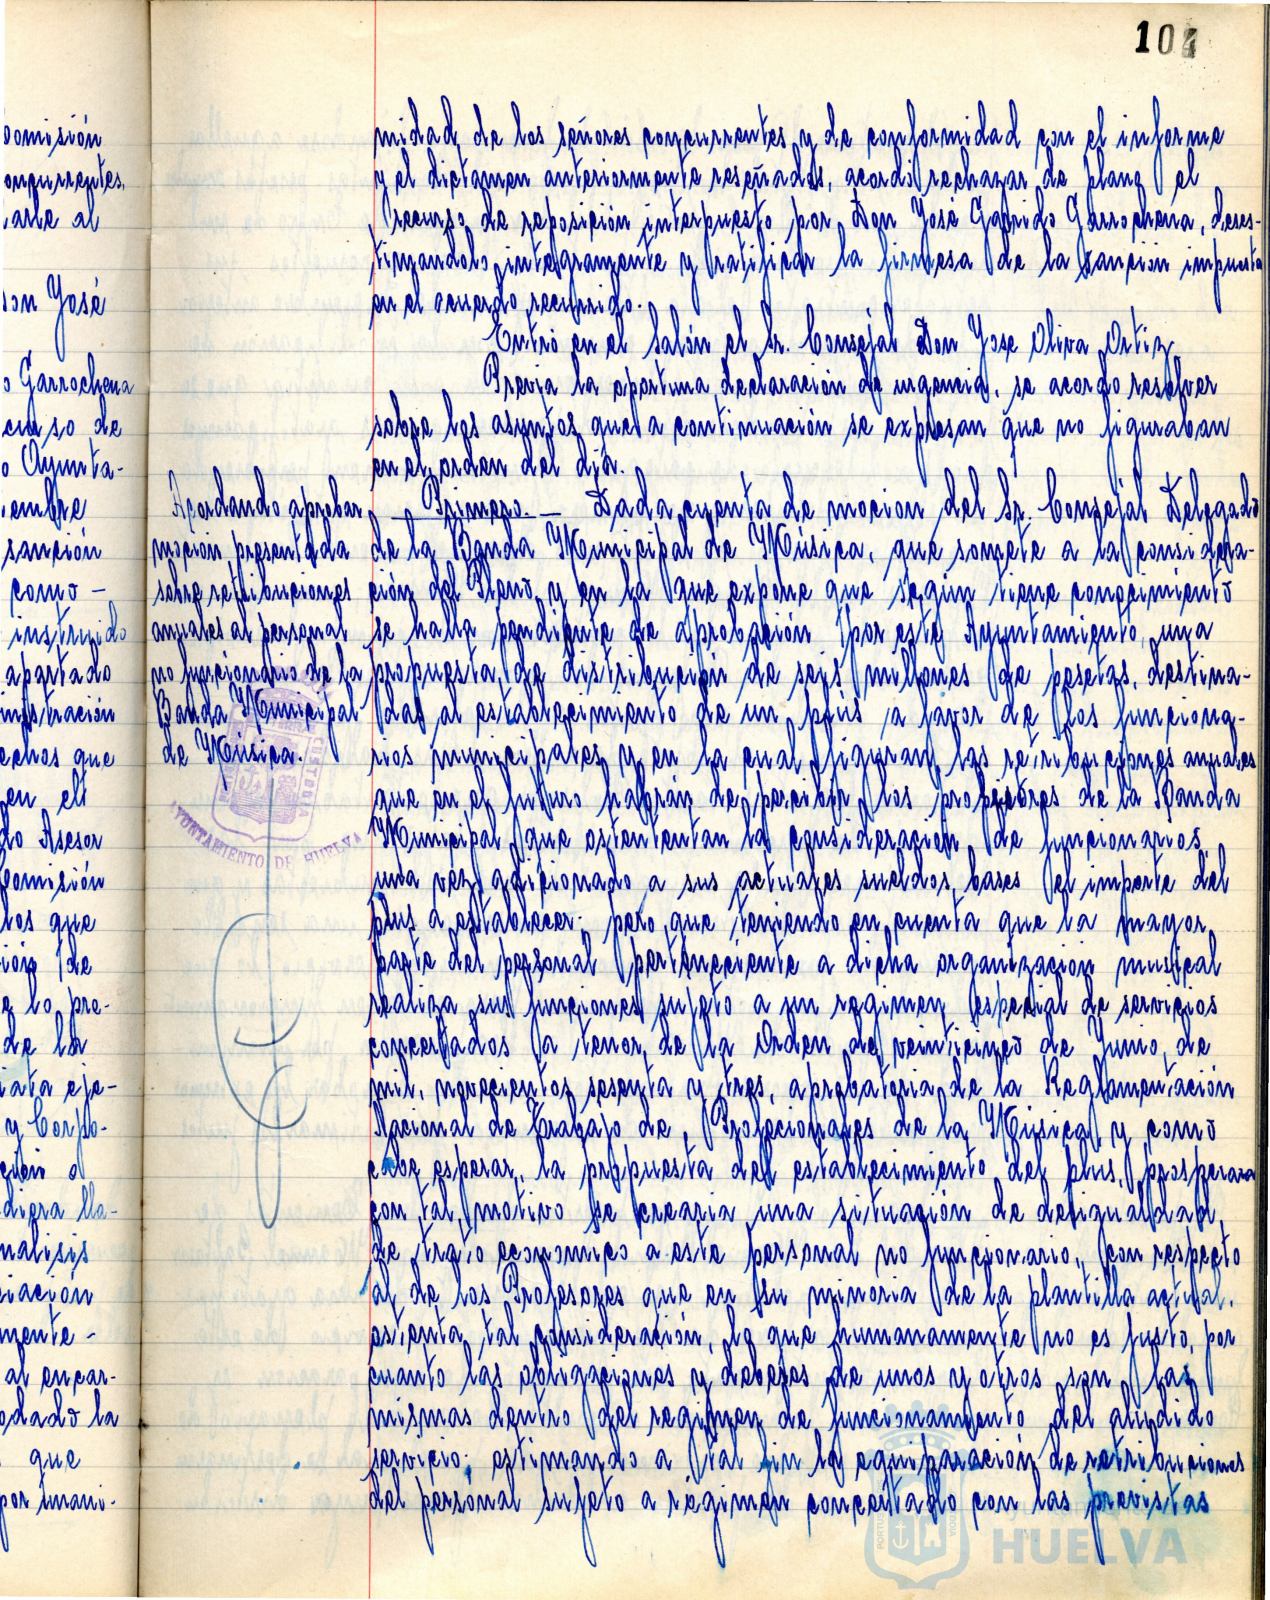 104
omisión
oncurrentes,
arle al
on José
o Garrochena
curso de
o Ayunta-
iembre
sanción
como —
instruido
apartado
inistración
echos que
en el
do Asesor
Comisión
los que
ión de
e lo pre-
de la
iata eje-
y Corpo-
ción o
diera lla-
nalisis
iación
mente -
al encar-
odado la
que
por unani-
midad de los señores concurrentes y de conformidad con el informe
y el dictamen anteriormente reseñados, acordó rechazar de plano el
recurso de reposición interpuesto por Don José Garrido Garrochena, deses-
timandolo integramente y ratificar la firmesa de la sanción impuesta
en el acuerdo recurrido.
Entró en el Salón el Sr. Consejal Don Jose Oliva Ortiz
Previa la oportuna declaración de urgencia, se acordo resolver
sobre los asuntos que a continuación se expresan que no figuraban
en el orden del día.
Acordando aprobar
moción presentada
sobre retribuciones
anuales al personal
no funcionario de la
Banda Municipal
de Música.
AYUNTAMIENTO DE HUELVA
Primero. — Dada cuenta de mocion del Sr. Consejal Delegado
de la Banda Municipal de Música, que somete a la considera-
ción del Pleno y en la que expone que segun tiene conocimiento
se halla pendiente de aprobación por este Ayuntamiento, una
propuesta de distribución de seis millones de pesetas, destina-
das al establecimiento de un plus a favor de los funciona-
rios municipales y en la cual figuran las retribuciones anuales
que en el futuro habrán de percibir los profesores de la Banda
Municipal que ostententan la consideración de funcionarios,
una vez adicionado a sus actuales sueldos bases el importe del
plus a establecer; pero que teniendo en cuenta que la mayor
parte del personal perteneciente a dicha organizacion musical
realiza sus funciones sujeto a un regimen especial de servicios
concertados a tenor de la Orden de veinticinco de Junio de
mil novecientos sesenta y tres, aprobatoria de la Reglamentación
Nacional de Trabajo de Profecionales de la Música, y como
cabe esperar, la propuesta del establecimiento del plus, prosperara
con tal motivo se crearia una situación de desigualdad
de trato economico a este personal no funcionario, con respecto
al de los Profesores que en su minoria de la plantilla actual,
ostenta tal consideración, lo que humanamente no es justo, por
cuanto las obligaciones y deberes de unos y otros son las
mismas dentro del regimen de funcionamiento del aludido
servicio; estimando a tal fin la equiparación de retribuciones
del personal sujeto a regimen concertado con las previstas
HUELVA